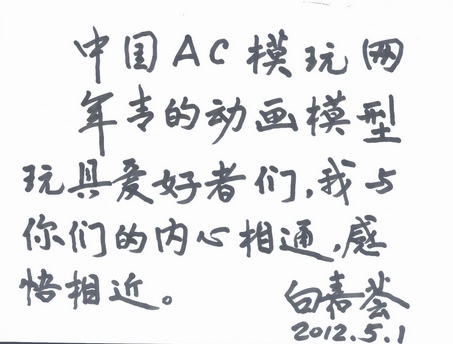 中国AC模玩网
年青的动画模型
玩具爱好者们,我与
你们的内心相通,感
悟相近。
白嘉荟
2012.5.1